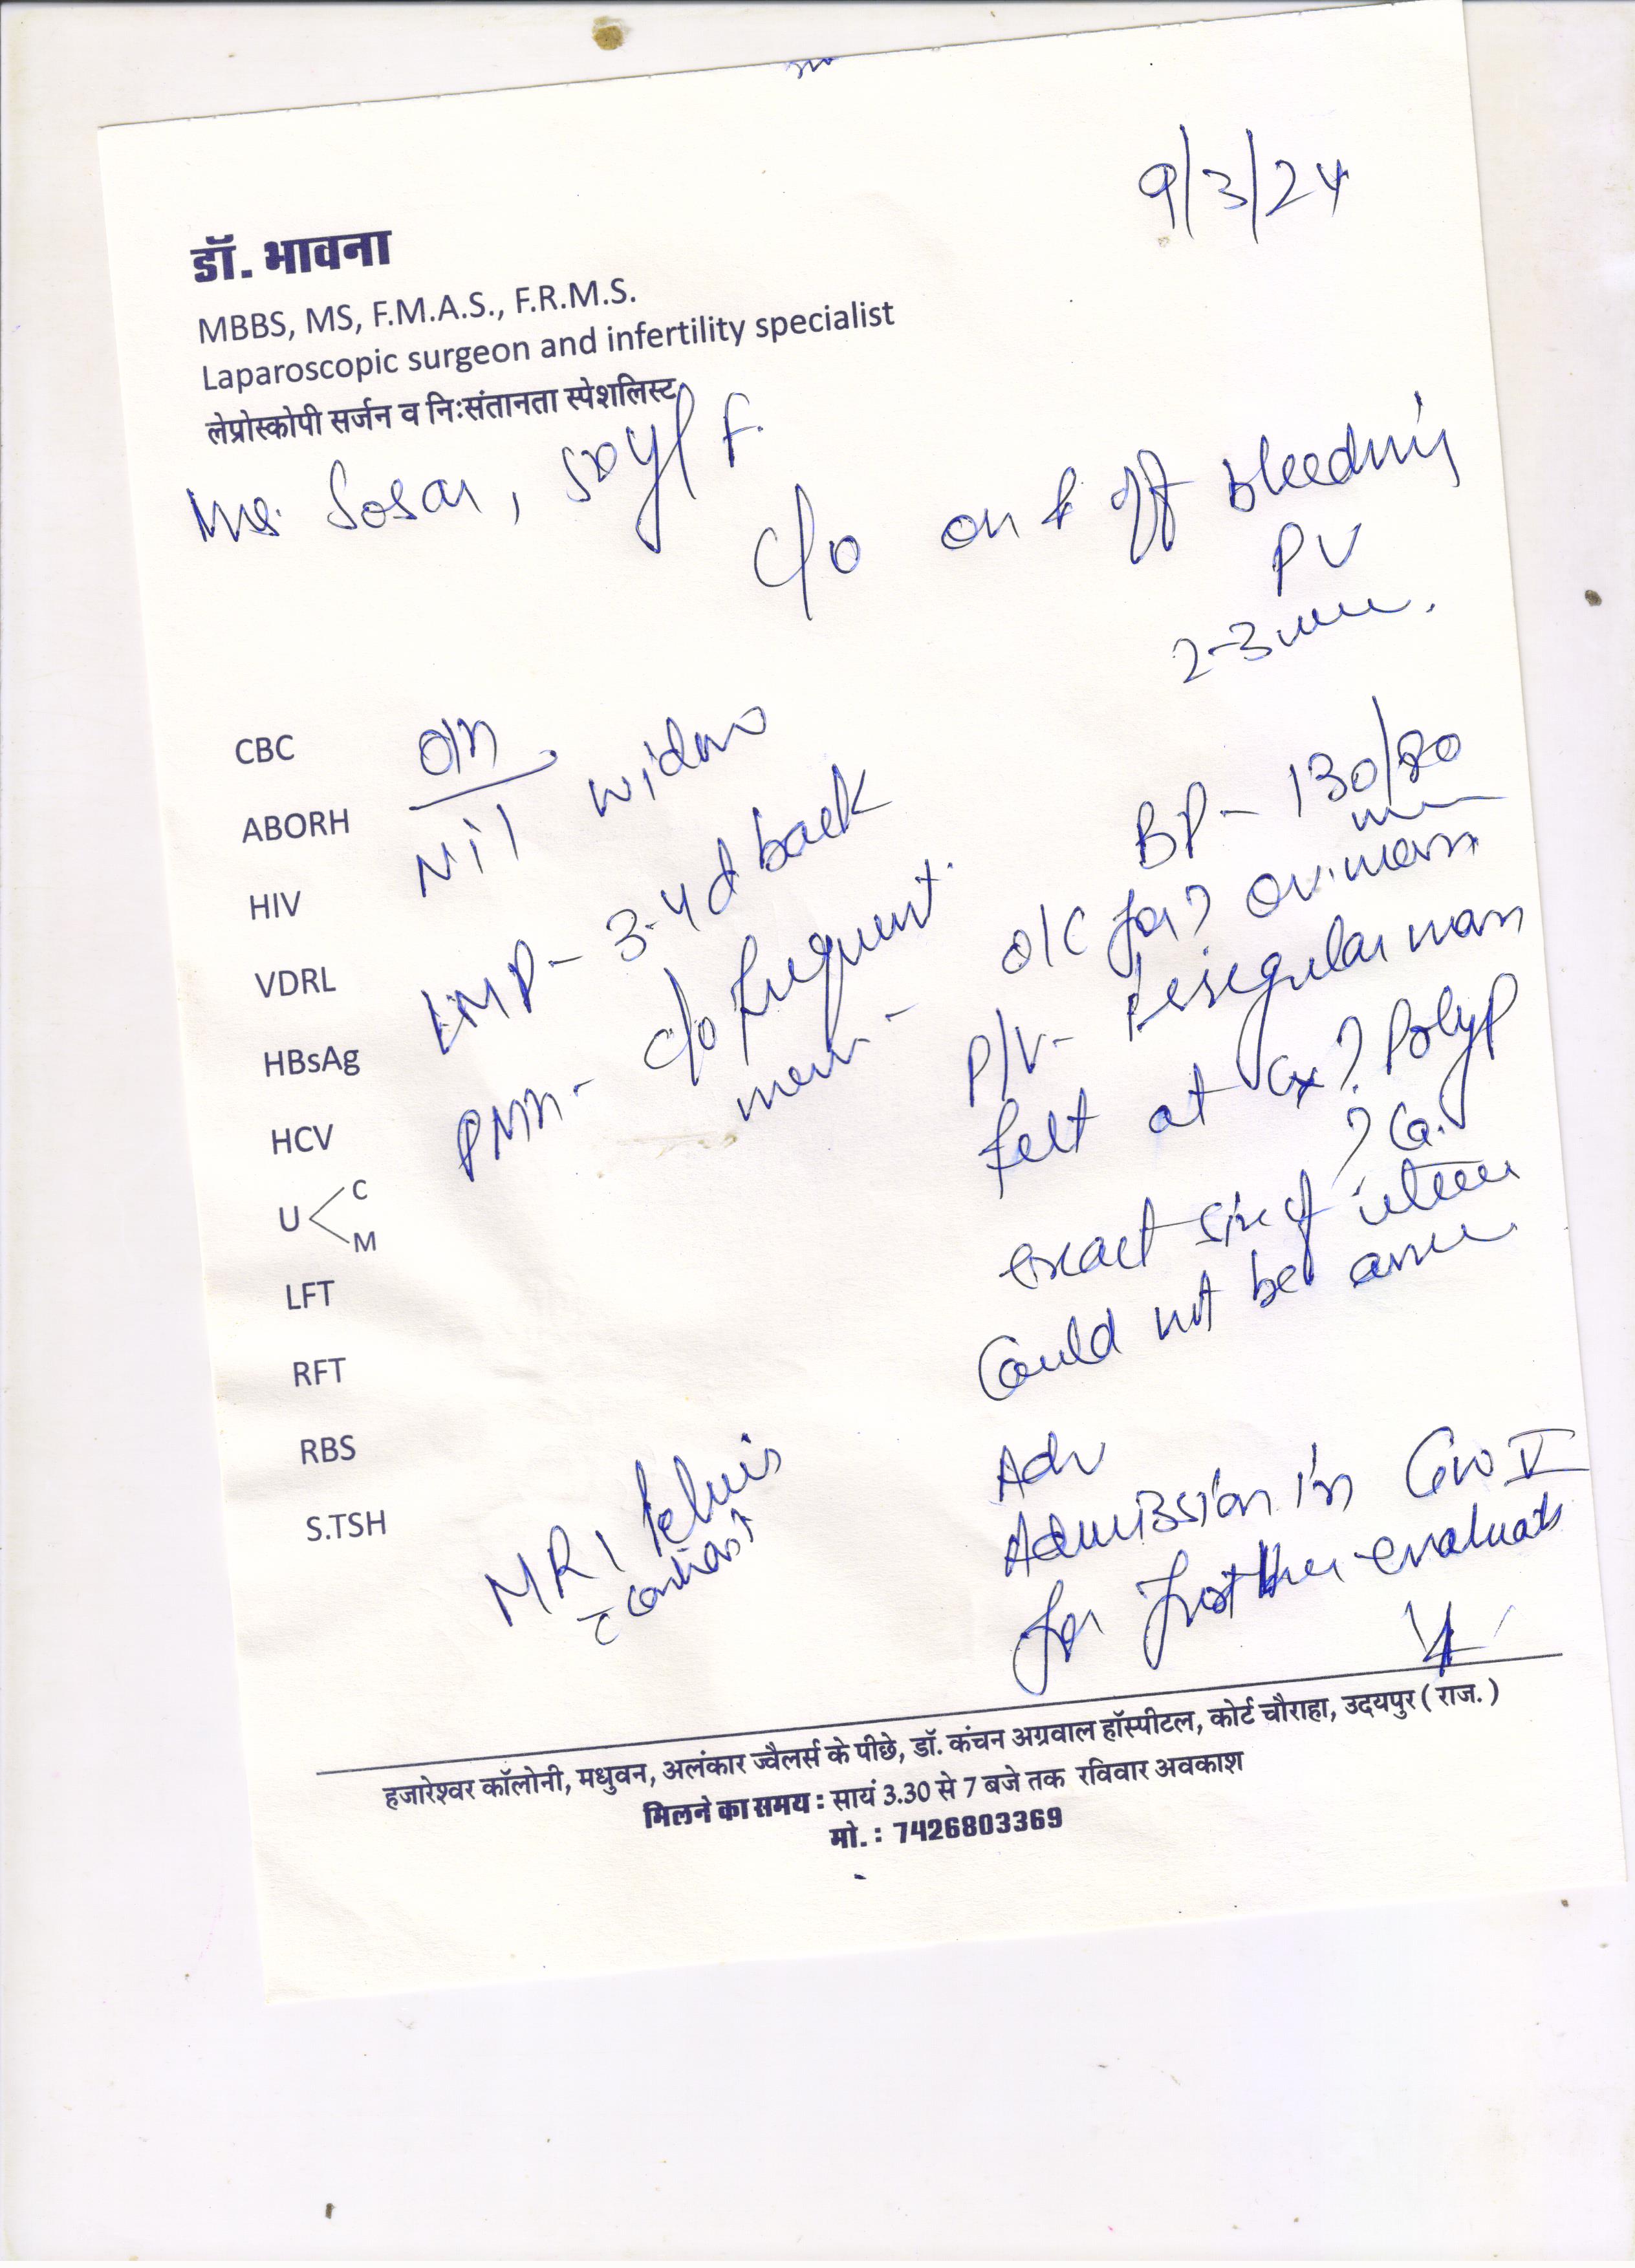 9/3/24
डॉ. भावना
MBBS, MS, F.M.A.S., F.R.M.S.
Laparoscopic surgeon and infertility specialist
लेप्रोस्कोपी सर्जन व निःसंतानता स्पेशलिस्ट
Mrs. Sosar, 50y/F.
c/o on & off bleeding
PV
2-3
CBC
ABORH
HIV
VDRL
HBsAg
HCV
U C
M
LFT
RFT
RBS
S.TSH
O/H
Nil widow
LMP - 3-4d back
c/o frequent
BP - 130/80
for? ov. mass
P/V - Irregular mass
felt at Cx? Polyp
? Ca.
exact size of uterus
Could not be
MRI Pelvis
c contrast
Adv
Admission in
for further evaluat
हजारेश्वर कॉलोनी, मधुवन, अलंकार ज्वैलर्स के पीछे, डॉ. कंचन अग्रवाल हॉस्पीटल, कोर्ट चौराहा, उदयपुर ( राज. )
मिलने का समय : सायं 3.30 से 7 बजे तक रविवार अवकाश
मो. : 7426803369